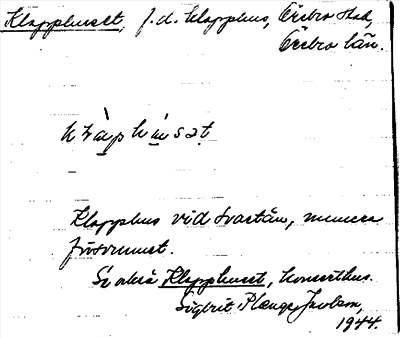 Klapphuset, f.d. klapphus, Örebro stad,
Örebro län.
Klapphus vid Svartån, numera
försvunnet.
Se också Klapphuset, konserthus.
Sigbrit Plænge Jacobson,
1944.